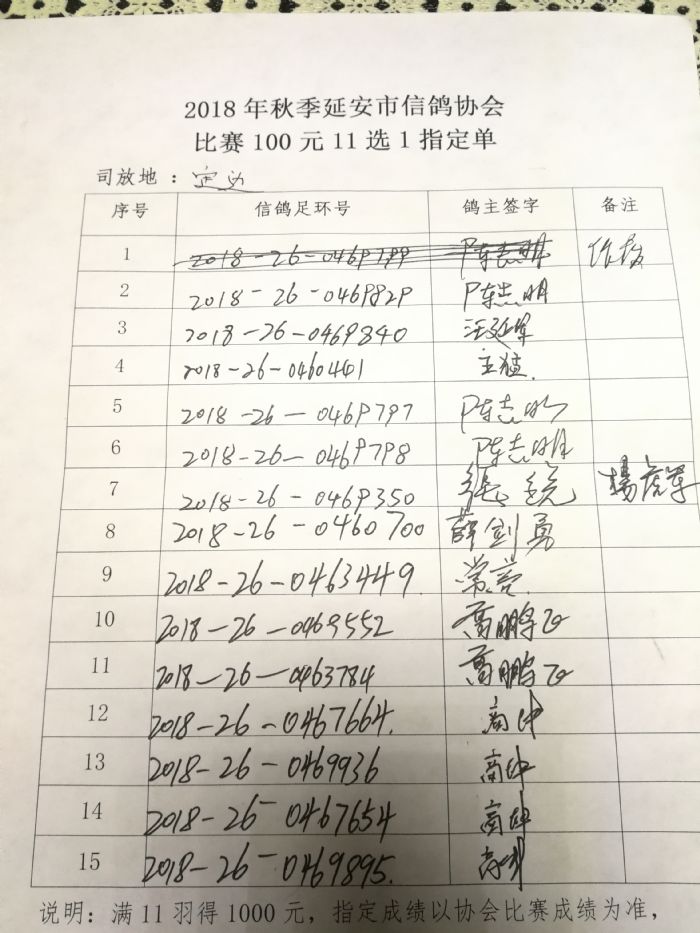 2018年秋季延安市信鸽协会
比赛100元11选1指定单
司放地：定边
序号 信鸽足环号 鸽主签字 备注
1 2018-26-0469799 陈志明 作废
2 2018-26-0469829 陈志明
3 2018-26-0469840 汪延军
4 2018-26-0460441 王猛.
5 2018-26-0469797 陈志明
6 2018-26-0469798 陈志明
7 2018-26-0469350 张 杨彦军
8 2018-26-0460700 薛剑勇
9 2018-26-0463449. 常
10 2018-26-0469552 高鹏飞
11 2018-26-0463784 高鹏飞
12 2018-26-0467664. 高坤
13 2018-26-0469936 高坤
14 2018-26-0467654 高坤
15 2018-26-0469895. 高坤
说明：满11羽得1000元，指定成绩以协会比赛成绩为准，